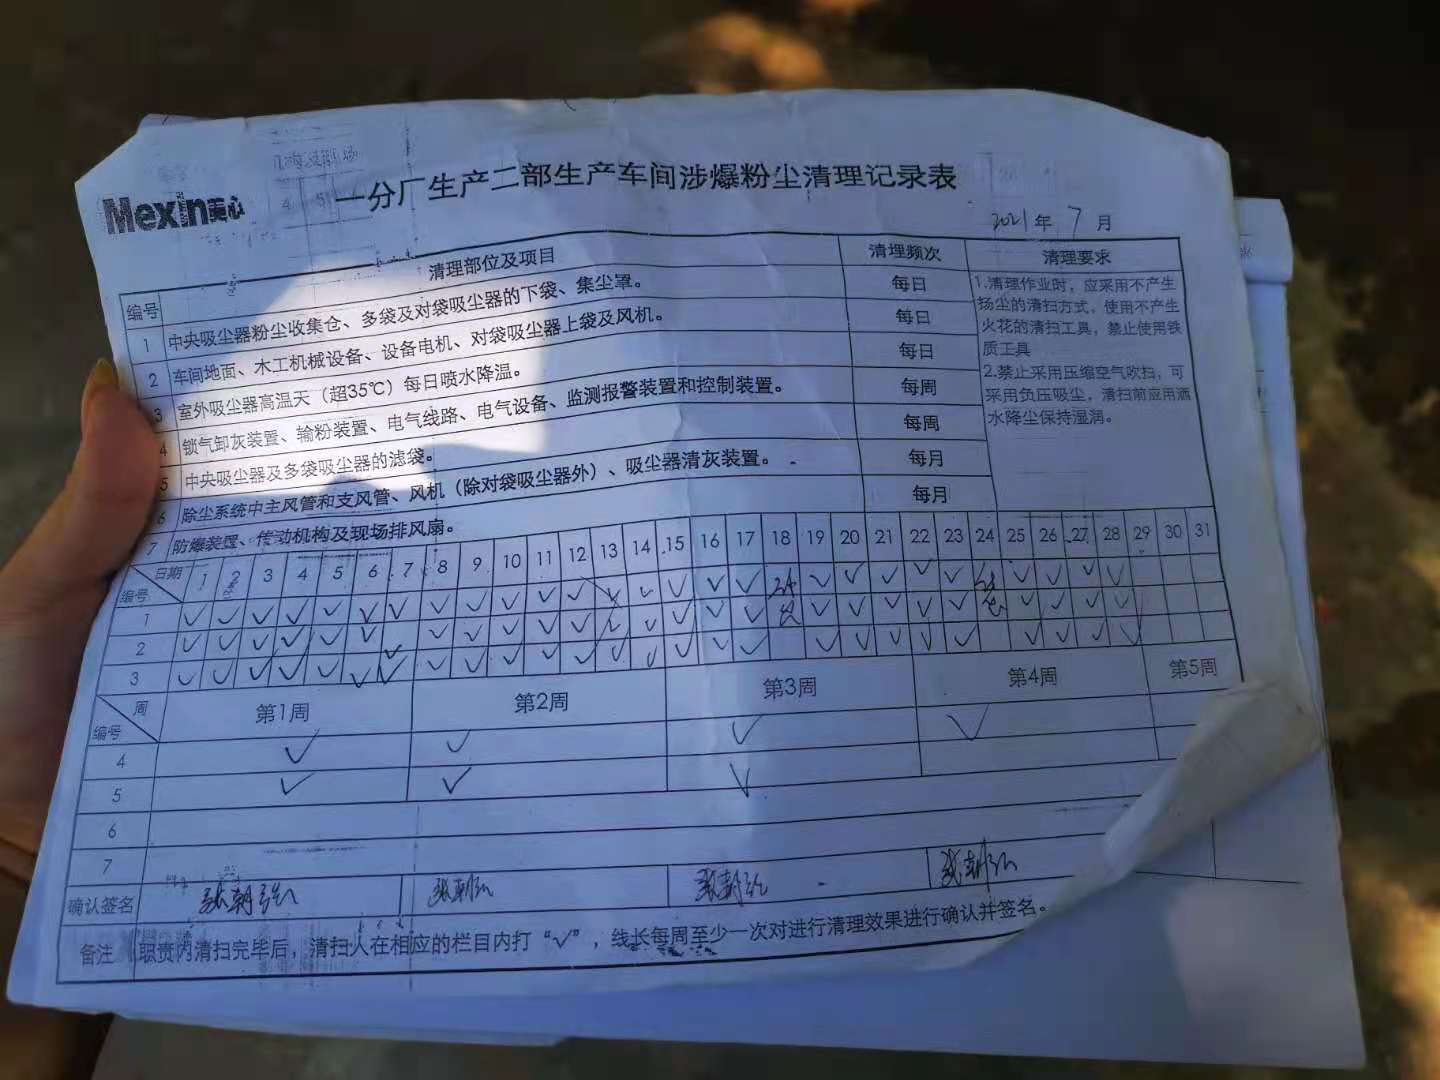 Mexin美心
一分厂生产二部生产车间涉爆粉尘清理记录表
2021年7月
编号 清理部位及项目 清理频次 清理要求
1 中央吸尘器粉尘收集仓、多袋及对袋吸尘器的下袋、集尘罩。 每日
2 车间地面、木工机械设备、设备电机、对袋吸尘器上袋及风机。 每日
3 室外吸尘器高温天（超35℃）每日喷水降温。 每日
4 锁气卸灰装置、输粉装置、电气线路、电气设备、监测报警装置和控制装置。 每周
5 中央吸尘器及多袋吸尘器的滤袋。 每周
6 除尘系统中主风管和支风管、风机（除对袋吸尘器外）、吸尘器清灰装置。 每月
7 防爆装置、传动机构及现场排风扇。 每月
1.清理作业时，应采用不产生
扬尘的清扫方式，使用不产生
火花的清扫工具，禁止使用铁
质工具
2.禁止采用压缩空气吹扫，可
采用负压吸尘，清扫前应用洒
水降尘保持湿润。
日期 编号 1 2 3 4 5 6 7 8 9 10 11 12 13 14 15 16 17 18 19 20 21 22 23 24 25 26 27 28 29 30 31
1 ✓ ✓ ✓ ✓ ✓ ✓ ✓ ✓ ✓ ✓ ✓ ✓ ✓ ✓ ✓ ✓ ✓ ✓ ✓ ✓ ✓ ✓ ✓ ✓ ✓ ✓
2 ✓ ✓ ✓ ✓ ✓ ✓ ✓ ✓ ✓ ✓ ✓ ✓ ✓ ✓ ✓ ✓ ✓ ✓ ✓ ✓ ✓ ✓ ✓ ✓ ✓ ✓
3 ✓ ✓ ✓ ✓ ✓ ✓ ✓ ✓ ✓ ✓ ✓ ✓ ✓ ✓ ✓ ✓ ✓ ✓ ✓ ✓ ✓ ✓ ✓ ✓ ✓ ✓
周 编号 第1周 第2周 第3周 第4周 第5周
4 ✓ ✓ ✓ ✓
5 ✓ ✓ ✓
6
7
确认签名
备注 职责内清扫完毕后，清扫人在相应的栏目内打“√”，线长每周至少一次对进行清理效果进行确认并签名。